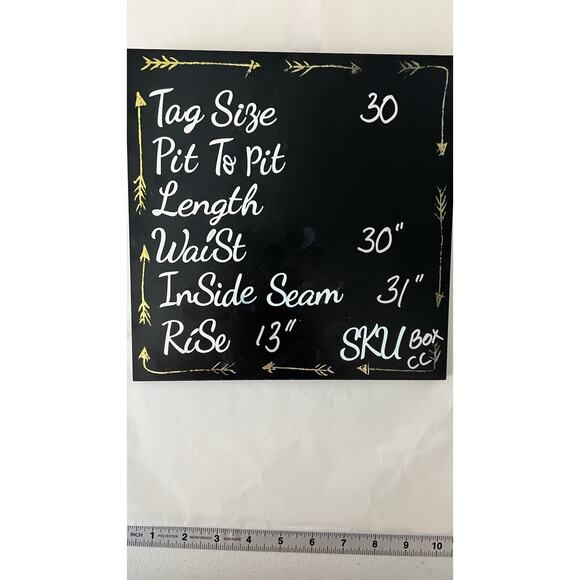 Tag Size 30
Pit To Pit
Length
WaiSt 30"
InSide Seam 31"
RiSe 13" SKU Box CC
INCH 1 POLYESTER 2 REINFORCED 3 VINTAPE 4 5 6 7 8 9 10